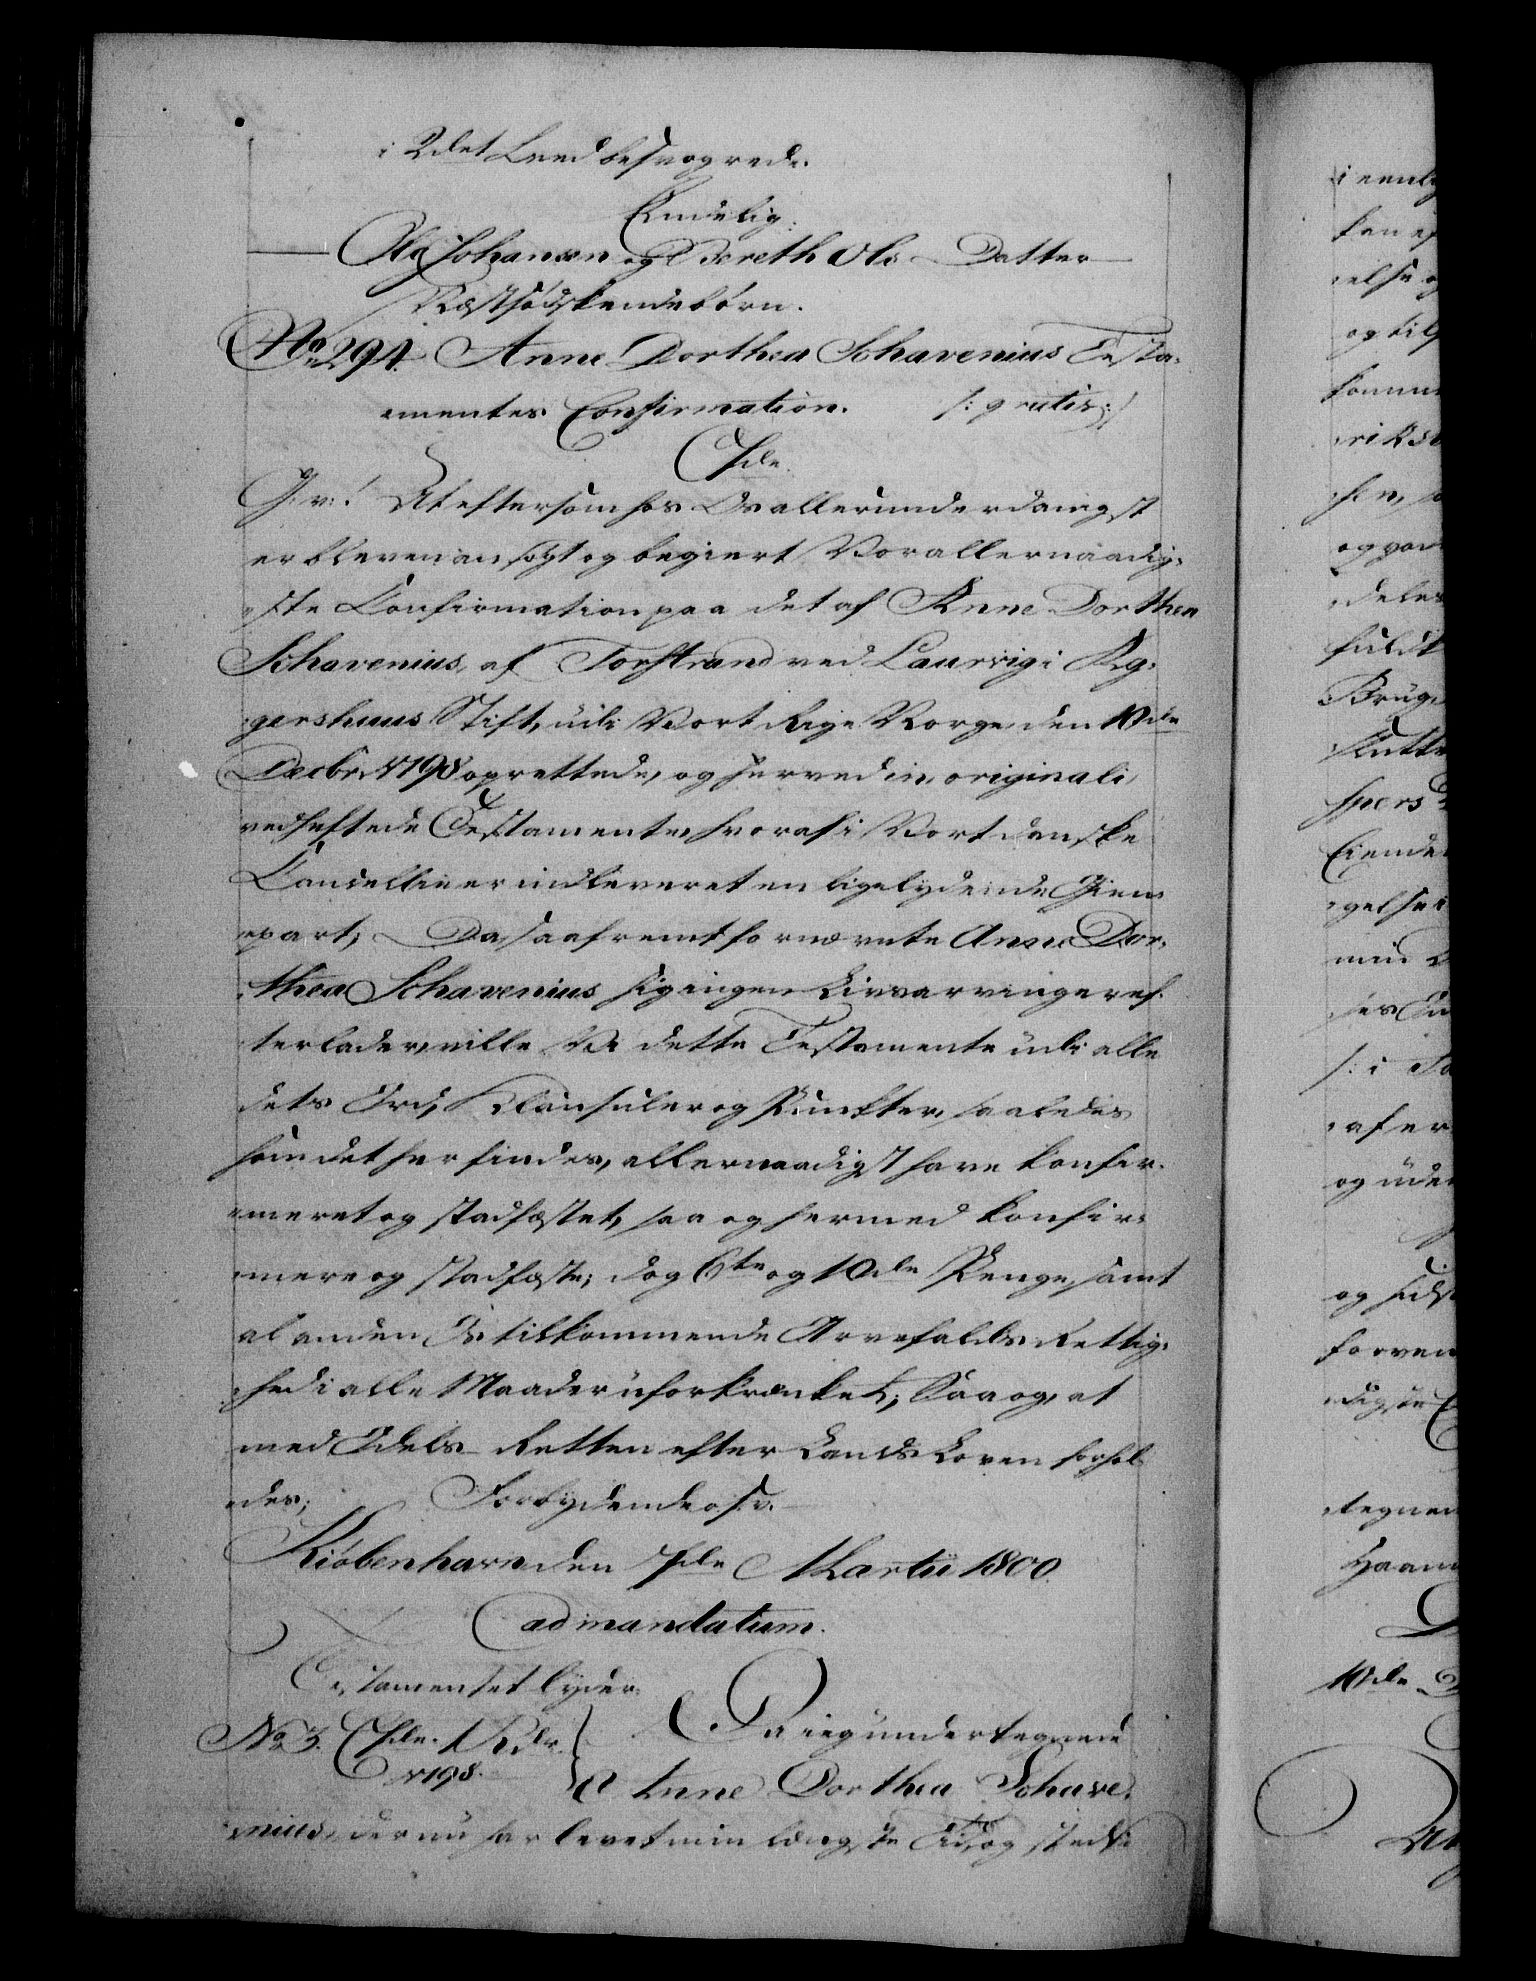 i 2det Leed besvogrede.
Endelig
Ole Johansen og Bereth Ols Datter
Næstsødskendebørn.
No 294. Anne Dorthea Schavenius Testa-
mentes Confirmation. /: gratis :/
G: v: ! At eftersom hos Os allerunderdanigst
er bleven ansøgt og begiert Vor allernaadig-
ste Confirmation paa det af Anne Dorthea
Schavenius, af Torstrand ved Laurvig i Ag-
gershuus Stift, udi Vort Rige Norge, den 10de
Decbr. 1798 oprettede, og herved in originali
vedheftede Testamente, hvoraf i Vort danske
Cancellie er indleveret en ligelydende Gien-
part; Da saafremt fornævnte Anne Dor-
thea Schavenius sig ingen Livsarvinger ef-
terlader, ville Vi dette Testamente udi alle
dets Ord, Klausuler og Punkter, saaledes
som det her findes, allernaadigst have konfir-
meret og stadfæstet, saa og hermed konfir-
mere og stadfæste; dog 6te og 10de Penge, samt
al anden Os tilkommende Arvefalds Rettig-
hed i alle Maader uforkrænket; Saa og, at
med Odels-Retten efter Lands Loven forhol-
des; Forbydende o: s: v:
Kiöbenhavn den 7de Martii 1800.
ad mandatum.
Testamentet lyder:
No 3. 1 Rdlr. 1798. } Da jeg undertegnede
Anne Dorthea Schave-
nius, der nu har levet min længste Tid, og stedse